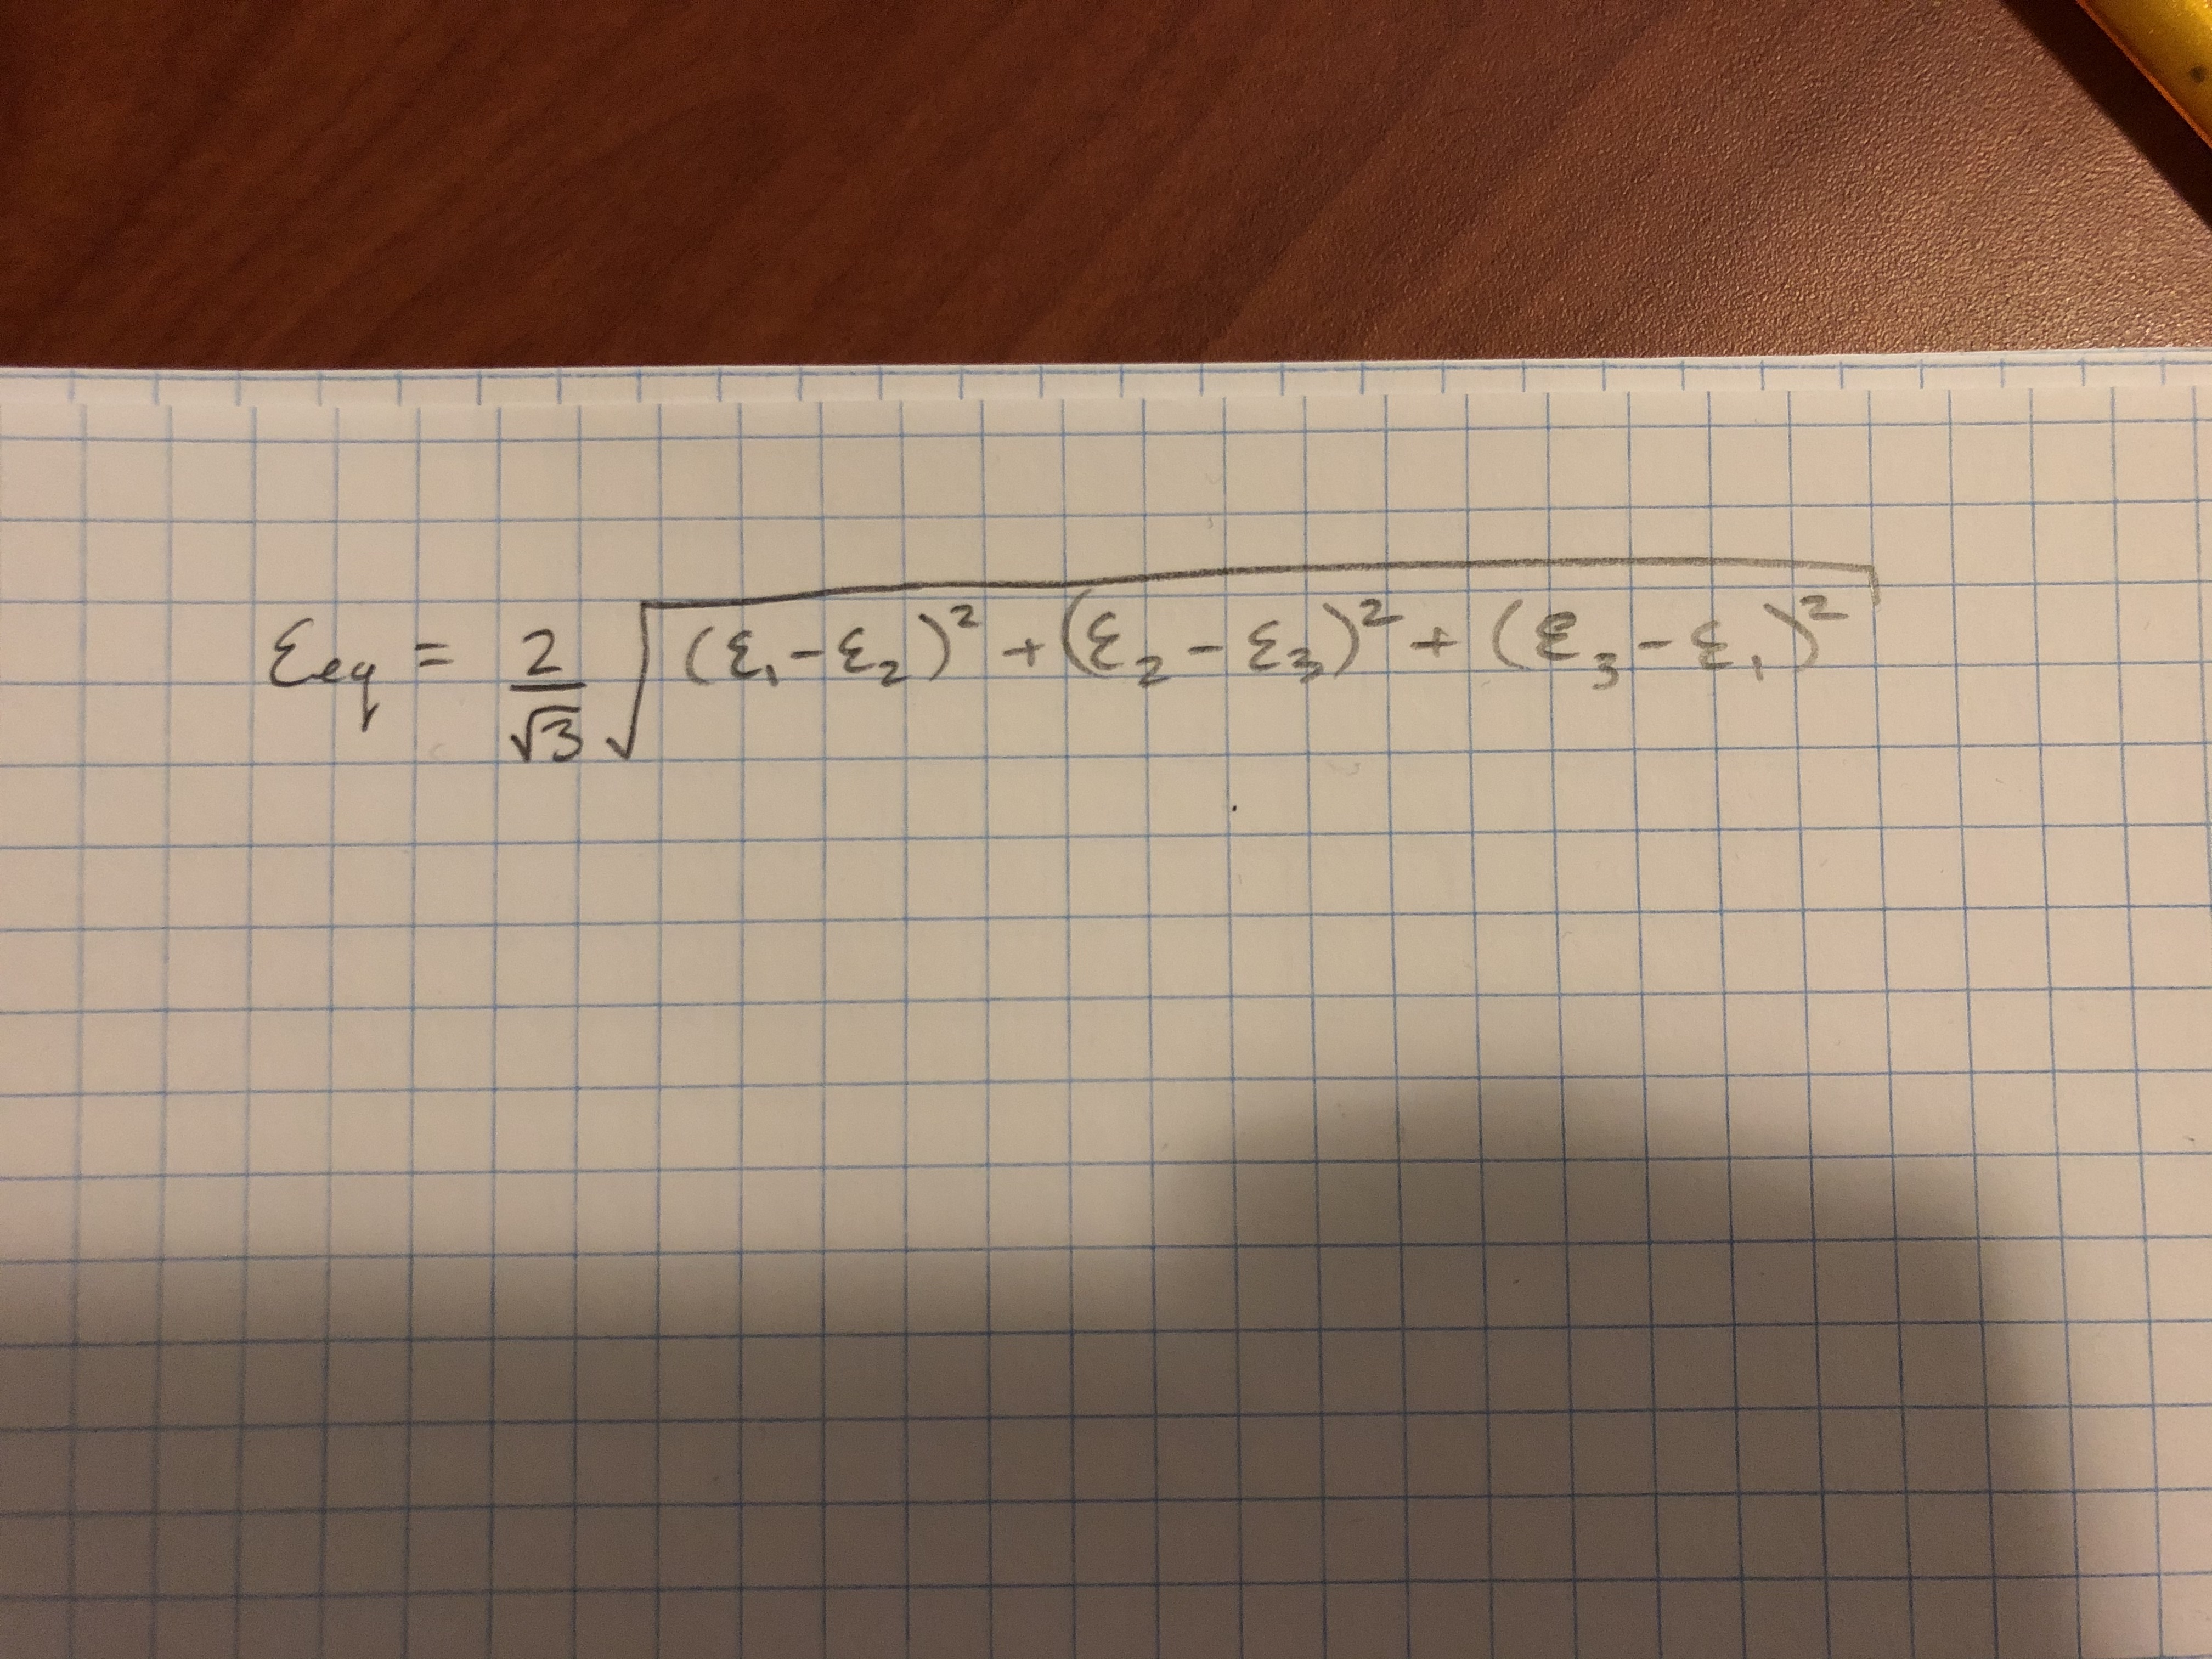 ε_eq = 2/√3 √((ε₁-ε₂)² + (ε₂-ε₃)² + (ε₃-ε₁)²)